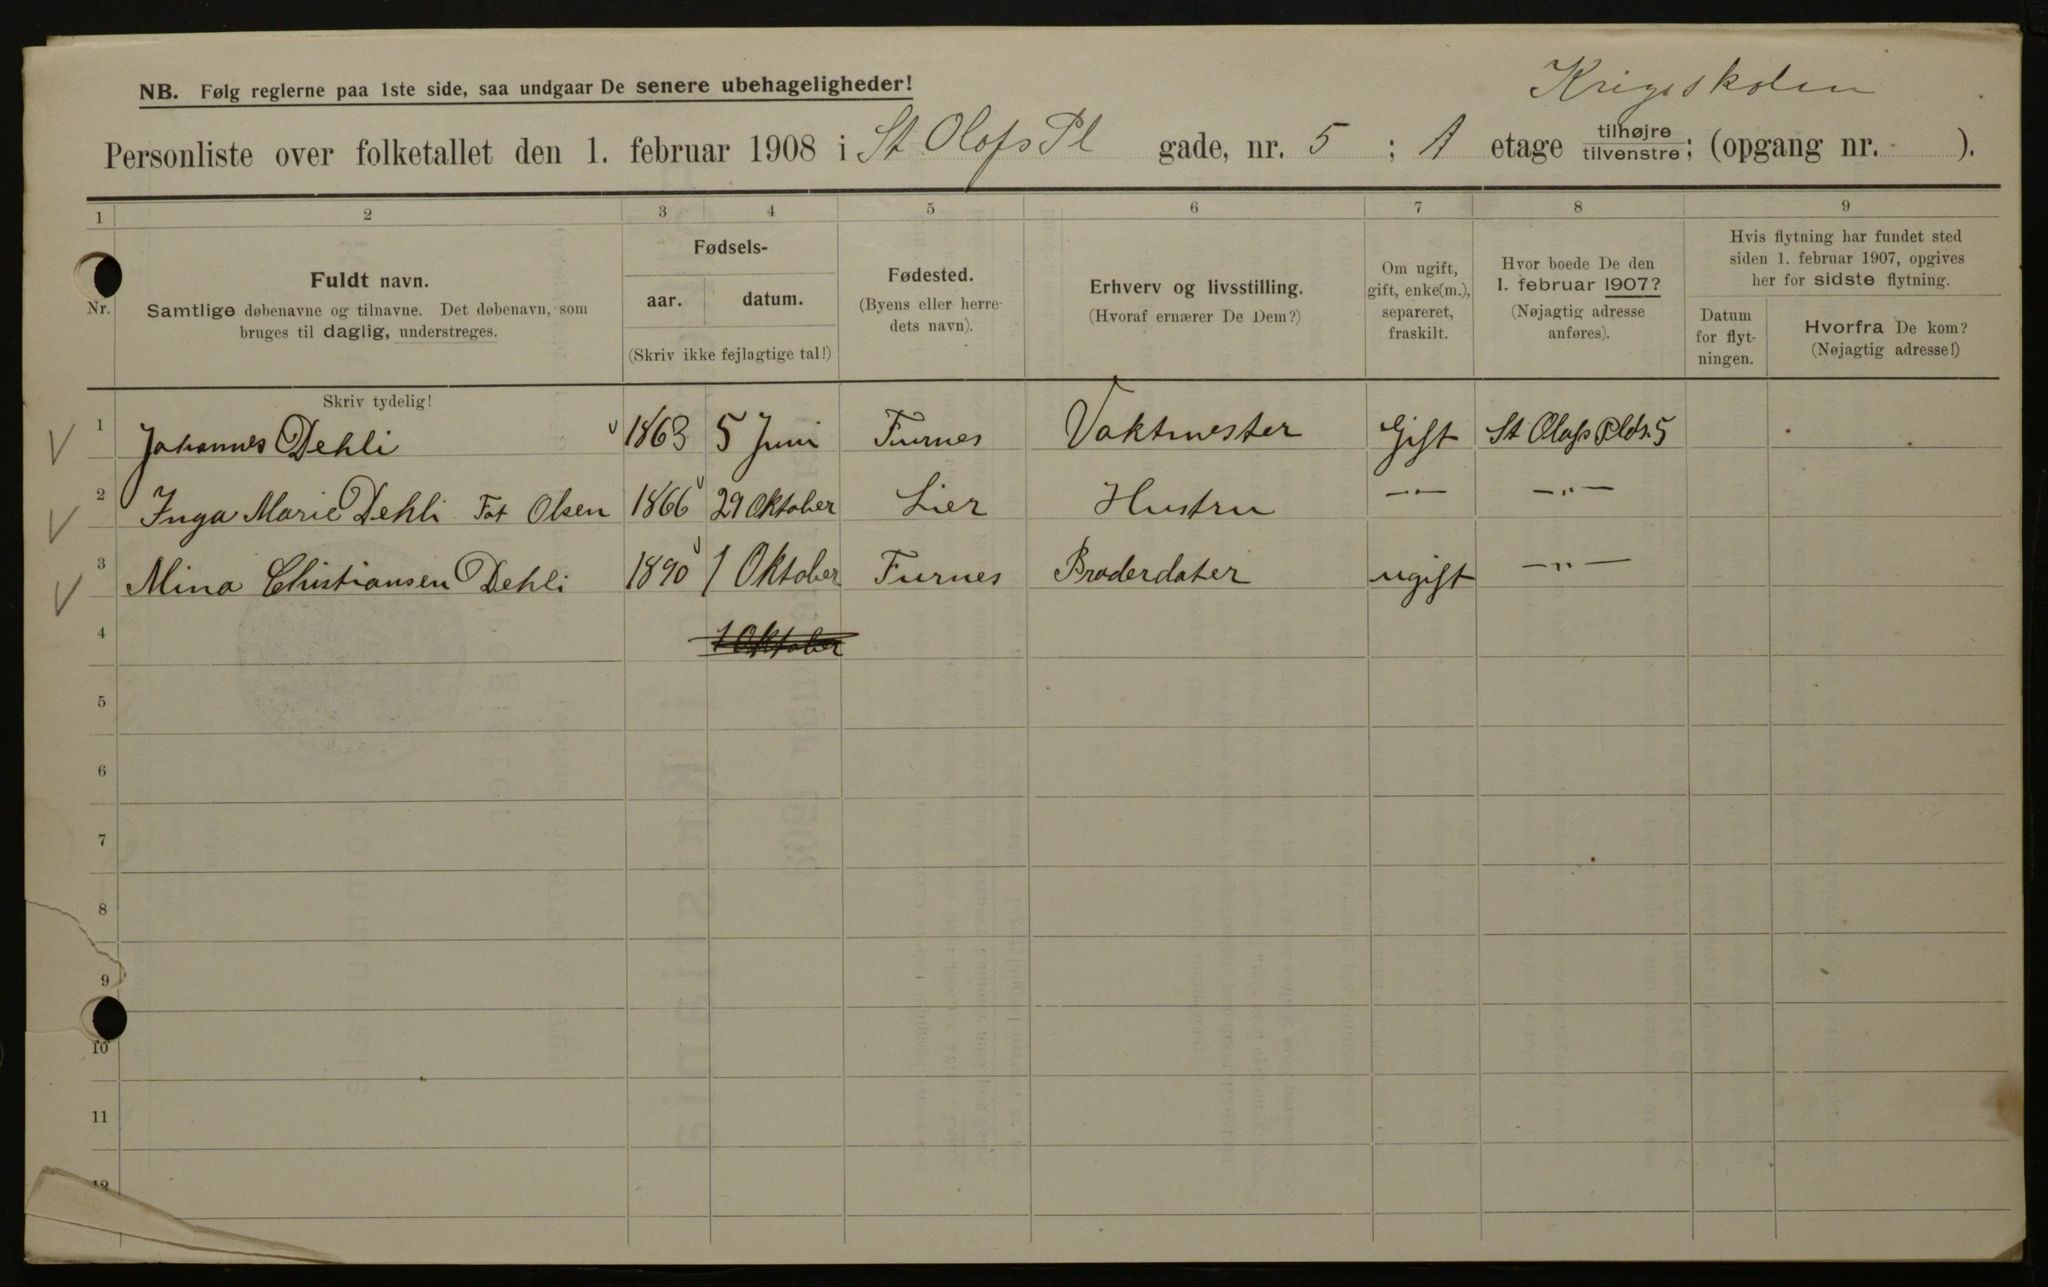 Krigsskolen
NB. Følg reglerne paa 1ste side, saa undgaar De senere ubehageligheder!
Personliste over folketallet den 1. februar 1908 i St Olafs Pl gade, nr. 5 ; A etage tilhøjre/tilvenstre; (opgang nr. ).
1 2 3 4 5 6 7 8 9
Nr.
Fuldt navn.
Samtlige døbenavne og tilnavne. Det døbenavn, som
bruges til daglig, understreges.
Fødsels-
aar. datum.
(Skriv ikke fejlagtige tal!)
Fødested.
(Byens eller herre-
dets navn).
Erhverv og livsstilling.
(Hvoraf ernærer De Dem?)
Om ugift,
gift, enke(m.),
separeret,
fraskilt.
Hvor boede De den
1. februar 1907?
(Nøjagtig adresse
anføres).
Hvis flytning har fundet sted
siden 1. februar 1907, opgives
her for sidste flytning.
Datum
for flyt-
ningen.
Hvorfra De kom?
(Nøjagtig adresse!)
Skriv tydelig!
1 Johannes Dehli 1863 5 Juni Furnes Vaktmester Gift St Olafs Plds. 5
2 Inga Marie Dehli Föt Olsen 1866 29 Oktober Lier Hustru —"— —"—
3 Mina Christiansen Dehli 1890 1 Oktober Furnes Broderdater ugift —"—
4 1 Oktober
5
6
7
8
9
10
11
12